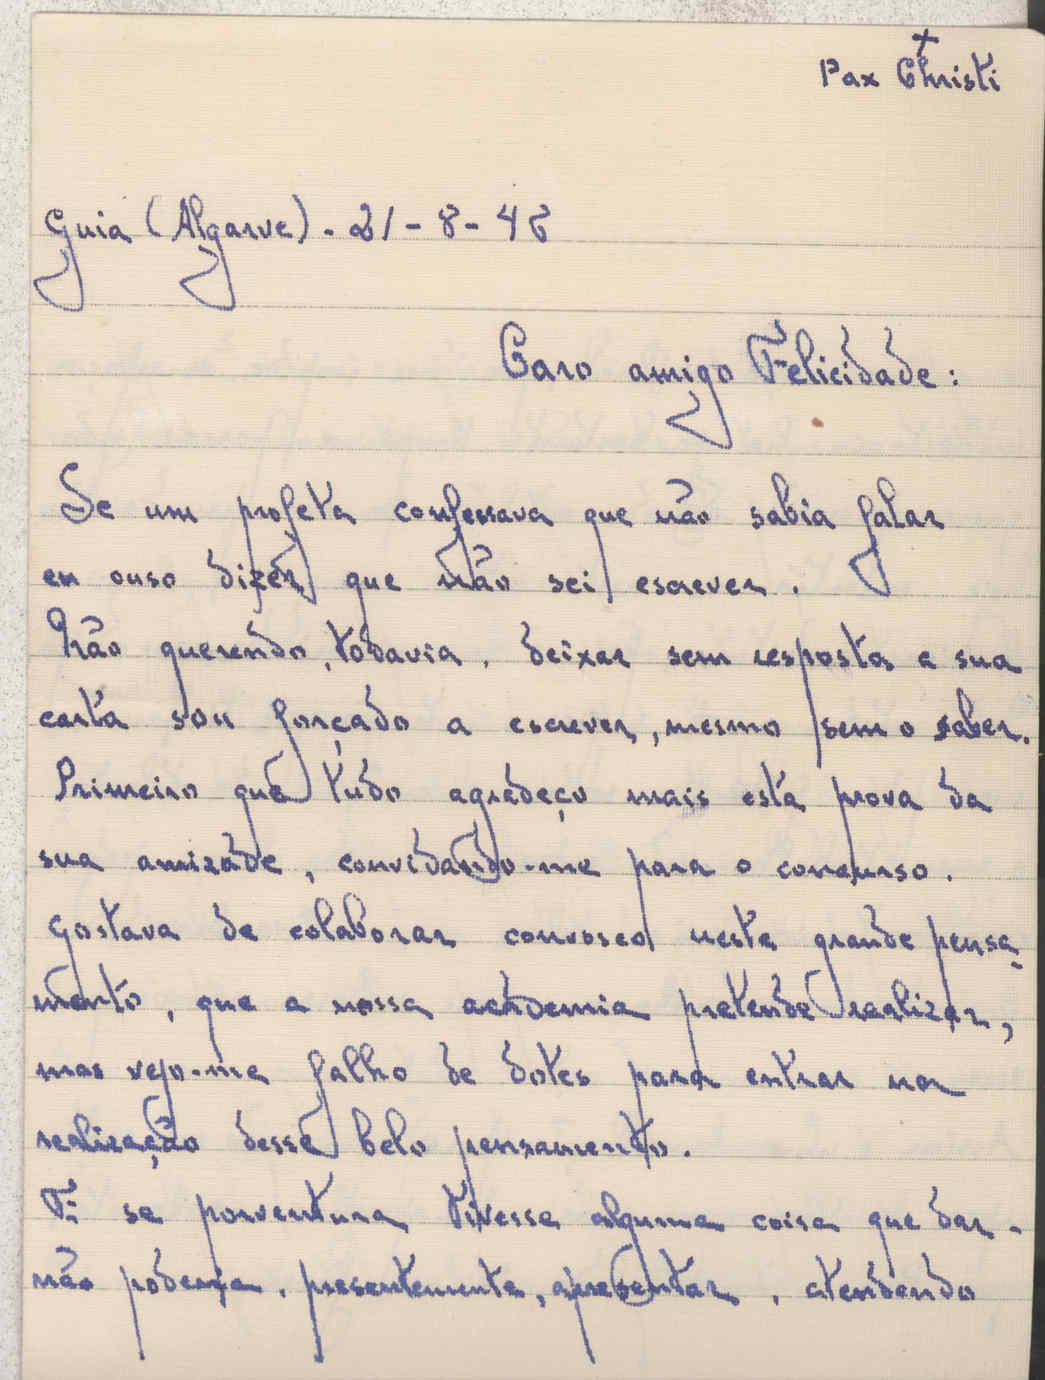 Pax Christi
Guia (Algarve) - 21 - 8 - 48
Caro amigo Felicidade:
Se um profeta confessava que não sabia falar
eu ouso dizer que não sei escrever.
Não querendo, todavia, deixar sem resposta a sua
carta sou forçado a escrever, mesmo sem o saber.
Primeiro que tudo agradeço mais esta prova da
sua amizade, convidando-me para o concurso.
Gostava de colaborar convosco neste grande pensa-
mento, que a nossa academia pretende realizar,
mas vejo-me falho de dotes para entrar na
realização desse belo pensamento.
E se porventura tivesse alguma coisa que dar -
não poderia, presentemente, apresentar, atendendo